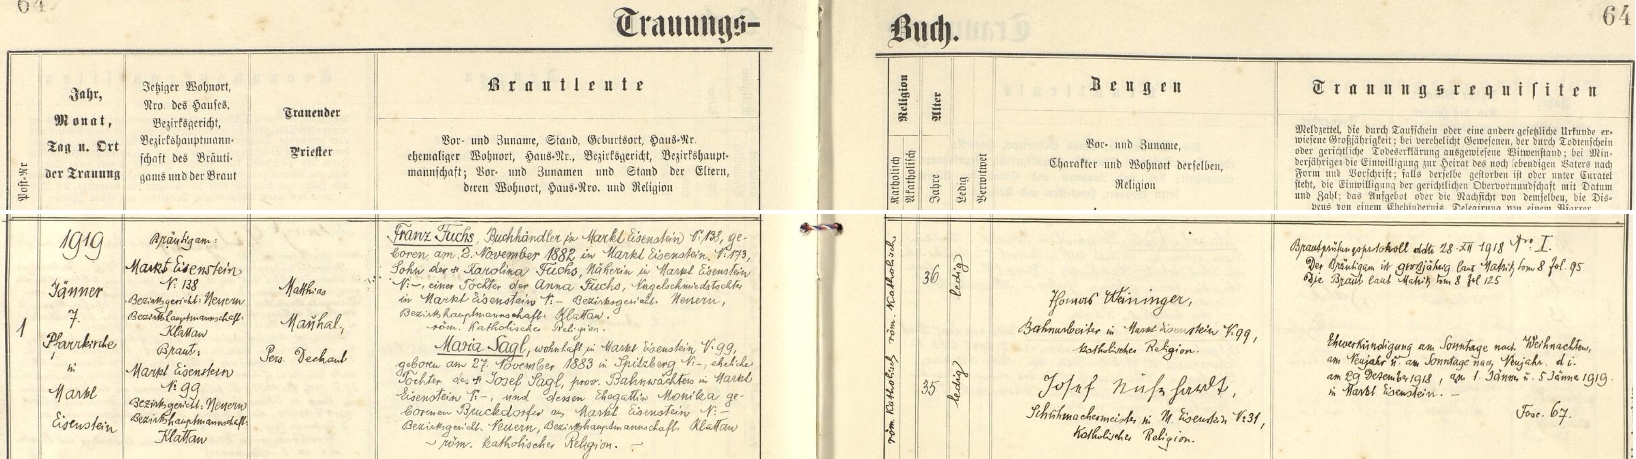 64
Trauungs-
Post-Nr
Jahr,
Monat,
Tag u. Ort
der Trauung
Jetziger Wohnort,
Nro. des Hauses,
Bezirksgericht,
Bezirkshauptmann-
schaft des Bräuti-
gams und der Braut
Trauender
Priester
Brautleute
Vor- und Zuname, Stand, Geburtsort, Haus-Nr.
ehemaliger Wohnort, Haus-Nr., Bezirksgericht, Bezirkshaupt-
mannschaft; Vor- und Zunamen und Stand der Eltern,
deren Wohnort, Haus-Nro. und Religion
1
1919
Jänner
7.
Pfarrkirche
in
Markt
Eisenstein
Bräutigam:
Markt Eisenstein
N: 138
Bezirksgericht: Neuern
Bezirkshauptmannschaft:
Klattau
Braut:
Markt Eisenstein
N: 99
Bezirksgericht: Neuern
Bezirkshauptmannschaft:
Klattau
Matthias
Mauhal,
Pers. Dechant
Franz Fuchs, Buchhändler in Markt Eisenstein N: 138, ge-
boren am 2. November 1882 in Markt Eisenstein N: 173,
Sohn der + Karolina Fuchs, Näherin in Markt Eisenstein
N: –, einer Tochter der Anna Fuchs, Nagelschmiedstochter
in Markt Eisenstein N: – Bezirksgericht: Neuern,
Bezirkshauptmannschaft: Klattau.
röm. katholischer Religion.
Maria Sagl, wohnhaft in Markt Eisenstein N: 99,
geboren am 27. November 1883 in Spitzberg N: –, eheliche
Tochter des + Josef Sagl, prov. Bahnwächters in Markt
Eisenstein N: –, und dessen Ehegattin Monika ge-
borenen Buckdorfer aus Markt Eisenstein N: –
Bezirksgericht: Neuern, Bezirkshauptmannschaft: Klattau
– röm. katholischer Religion. –
64
Buch.
Religion
Katholisch
Akatholisch
Alter
Jahre
Ledig
Verwitwet
Zeugen
Vor- und Zuname,
Charakter und Wohnort derselben,
Religion
Trauungsrequisiten
Meldzettel, die durch Taufschein oder eine andere gesetzliche Urkunde er-
wiesene Großjährigkeit; bei verehelicht Gewesenen, der durch Todtenschein
oder gerichtliche Todeserklärung ausgewiesene Witwenstand; bei Min-
derjährigen die Einwilligung zur Heirat des noch lebendigen Vaters nach
Form und Vorschrift; falls derselbe gestorben ist oder unter Curatel
steht, die Einwilligung der gerichtlichen Obervormundschaft mit Datum
und Zahl; das Aufgebot oder die Nachsicht von demselben, die Dis-
pens von einem Ehehindernis, Delegirung von einem Pfarrer
röm. katholisch
36
ledig
röm. katholisch
35
ledig
Thomas Weininger,
Bahnarbeiter in Markt Eisenstein N: 99,
katholischer Religion.
Josef Nußhardt,
Schuhmachermeister in M. Eisenstein N: 31,
katholischer Religion.
Brautprüfungsprotokoll ddto 28. XII 1918 Nro I.
Der Bräutigam ist großjährig laut Matrik tom 8 fol. 95
Die Braut laut Matrik tom 8 fol 125
Eheverkündigung am Sonntage nach Weihnachten,
am Neujahr u. am Sonntage nach Neujahr. d. i.
am 29 Dezember 1918, am 1. Jänner u. 5 Jänner 1919.
in Markt Eisenstein. –
Fasc. 67.